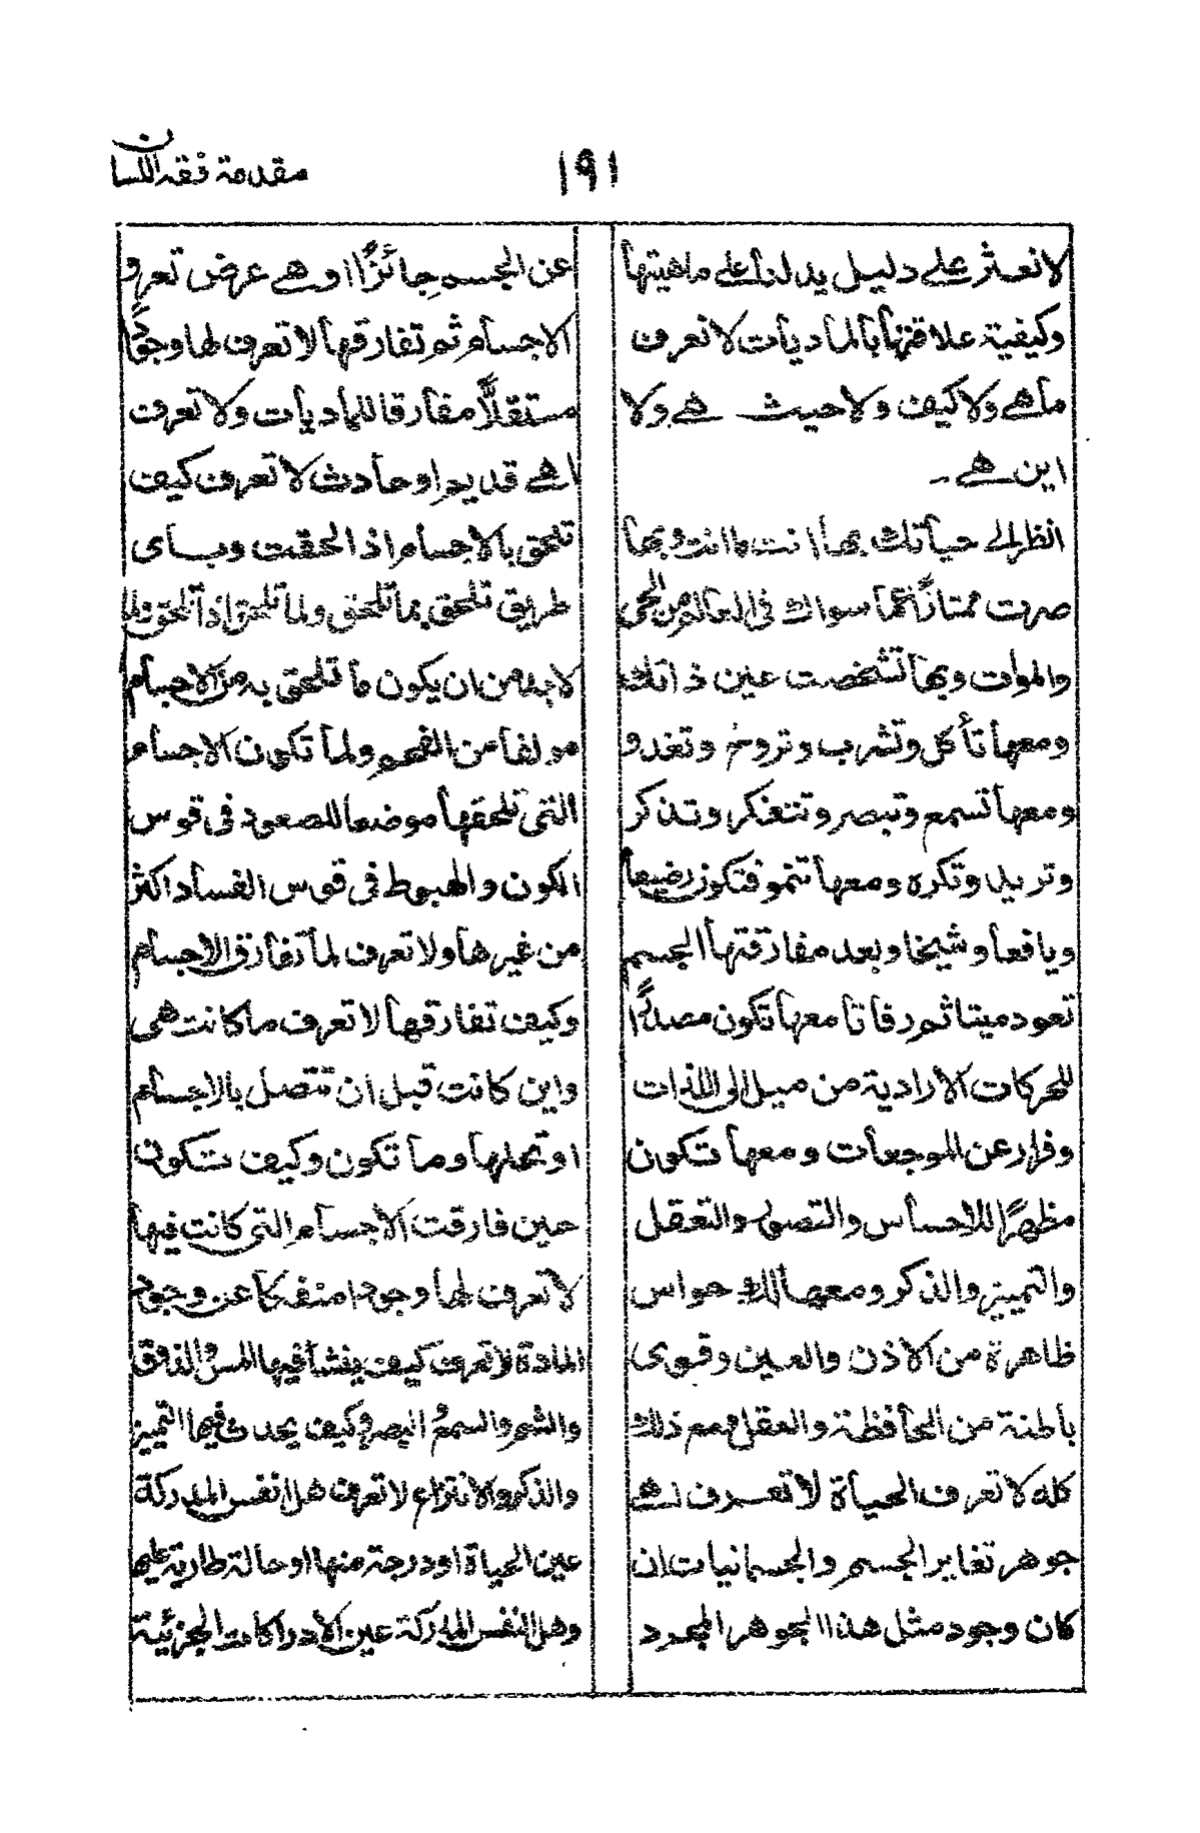 مقدمة فقه اللسان
١٩١
لا نعثر على دليل يدلنا على ماهيتها
وكيفية علاقتها بالماديات لا نعرف
ما هي ولا كيف ولا حيث هي ولا
اين هي -
انظر الى حياتك بها انت ما انت وبها
صرت ممتازًا عما سواك في العالم من الحي
والموات وبها تشخصت عين ذاتك
ومعها تأكل وتشرب وتروح وتغدو
ومعها تسمع وتبصر وتتفكر وتذكر
وتريد وتكره ومعها تنمو فتكون رضيعا
ويافعا وشيخا وبعد مفارقتها الجسم
تعود ميتا ثم رفاتا معها تكون مصدرًا
للحركات الارادية من ميل الى اللذات
وفرار عن الموجعات ومعها تكون
مظهرًا للاحساس والتصور والتعقل
والتميز والذكر ومعها لك حواس
ظاهرة من الاذن والعين وقوى
باطنة من الحافظة والعقل ومع ذلك
كله لا تعرف الحياة لا تعرف اهي
جوهر تغاير الجسم والجسمانيات ان
كان وجود مثل هذا الجوهر المجرد
عن الجسم جائزًا او هي عرض تعرو
الاجسام ثم تفارقها لا تعرف لها وجودًا
مستقلًا مفارقا للماديات ولا تعرف
اهي قديم او حادث لا تعرف كيف
تلحق بالاجسام اذا لحقت وباى
طريق تلحق بما تلحق ولما تلحق اذا تلحق
لا بد من ان يكون ما تلحق به من الاجسام
مولفا من الفحم ولما تكون الاجسام
التى تلحقها موضعا للصعود فى قوس
الكون والهبوط فى قوس الفساد اكثر
من غيرها ولا تعرف لما تفارق الاجسام
وكيف تفارقها لا تعرف ما كانت هى
واين كانت قبل ان تتصل بالاجسام
او تحلها وما تكون وكيف تتكون
حين فارقت الاجسام التى كانت فيها
لا تعرف لها وجودا منفكا عن وجود
المادة لا تعرف كيف ينشأ فيها المس والذوق
والشم والسمع والبصر وكيف يحدث فيها التميز
والذكر والانتزاع لا تعرف هل النفس المدركة
عين الحياة او درجة منها او حالة طارية عليها
وهل النفس المدركة عين الادراكات الجزئية